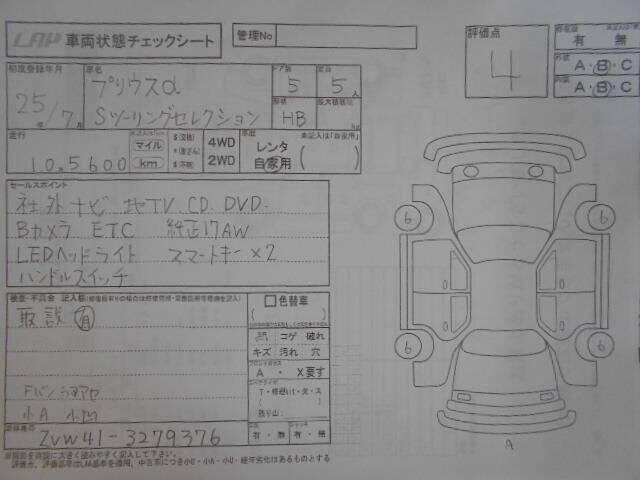 LAP 車両状態チェックシート
管理No
評価点
4
有 無
A・B・C
A・B・C
初度登録年月
25年/7月
車名
プリウスα
Sツーリングセレクション
ドア数
5
定員
5人
形状
HB
最大積載量
走行
10.5600
マイル
km
4WD
2WD
車歴
未記入は「自家用」
レンタ
自家用
セールスポイント
社外ナビ 地TV CD DVD
Bカメラ ETC 純正17AW
LEDヘッドライト スマートキー×2
ハンドルスイッチ
検査・不具合 記入欄
取説 有
色替車
コゲ 破れ
キズ 汚れ 穴
フロントガラス
A ・ X要す
残り山:
小A 小凹
車体番号
ZVW41-3279376
有・無
有・無
6
6
6
6
A